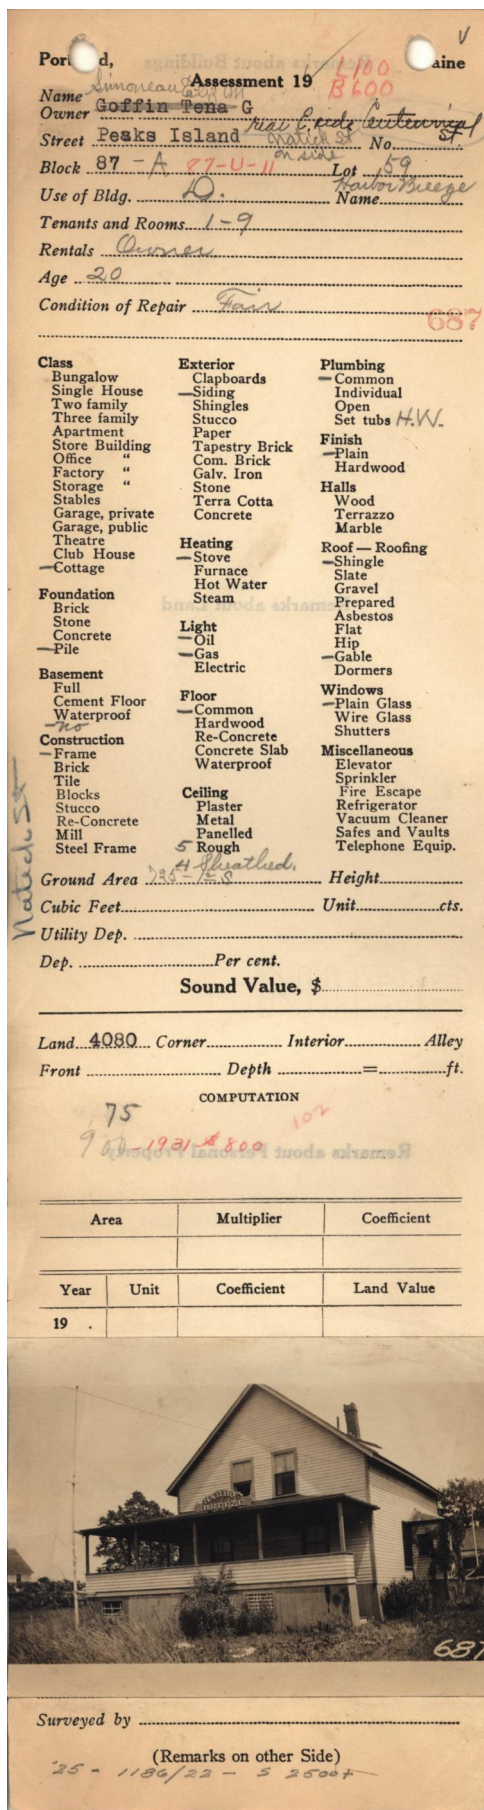 Portland, Maine
Assessment 19
L100
B600
Name Simoneau
Owner Goffin Tena G
rear E side Centennial St
Street Peaks Island Natick St No.
on side
Block 87 - A 87-U-11 Lot 59
Use of Bldg. D. Name Harbor Breeze
Tenants and Rooms 1-9
Rentals Owner
Age 20
Condition of Repair Fair
687
Class
Bungalow
Single House
Two family
Three family
Apartment
Store Building
Office "
Factory "
Storage "
Stables
Garage, private
Garage, public
Theatre
Club House
Cottage
Foundation
Brick
Stone
Concrete
Pile
Basement
Full
Cement Floor
Waterproof
no
Construction
Frame
Brick
Tile
Blocks
Stucco
Re-Concrete
Mill
Steel Frame
Exterior
Clapboards
Siding
Shingles
Stucco
Paper
Tapestry Brick
Com. Brick
Galv. Iron
Stone
Terra Cotta
Concrete
Heating
Stove
Furnace
Hot Water
Steam
Light
Oil
Gas
Electric
Floor
Common
Hardwood
Re-Concrete
Concrete Slab
Waterproof
Ceiling
Plaster
Metal
Panelled
5 Rough
4 Sheathed.
Plumbing
Common
Individual
Open
Set tubs H.W.
Finish
Plain
Hardwood
Halls
Wood
Terrazzo
Marble
Roof — Roofing
Shingle
Slate
Gravel
Prepared
Asbestos
Flat
Hip
Gable
Dormers
Windows
Plain Glass
Wire Glass
Shutters
Miscellaneous
Elevator
Sprinkler
Fire Escape
Refrigerator
Vacuum Cleaner
Safes and Vaults
Telephone Equip.
Natick St
Ground Area 725 Height
Cubic Feet Unit cts.
Utility Dep.
Dep. Per cent.
Sound Value, $
Land 4080 Corner Interior Alley
Front Depth = ft.
COMPUTATION
75
102
900 - 1931 - $800
Area Multiplier Coefficient
Year Unit Coefficient Land Value
19 .
HARBOR
BREEZE
687
Surveyed by
(Remarks on other Side)
'25 - 1186/22 - S 2500+